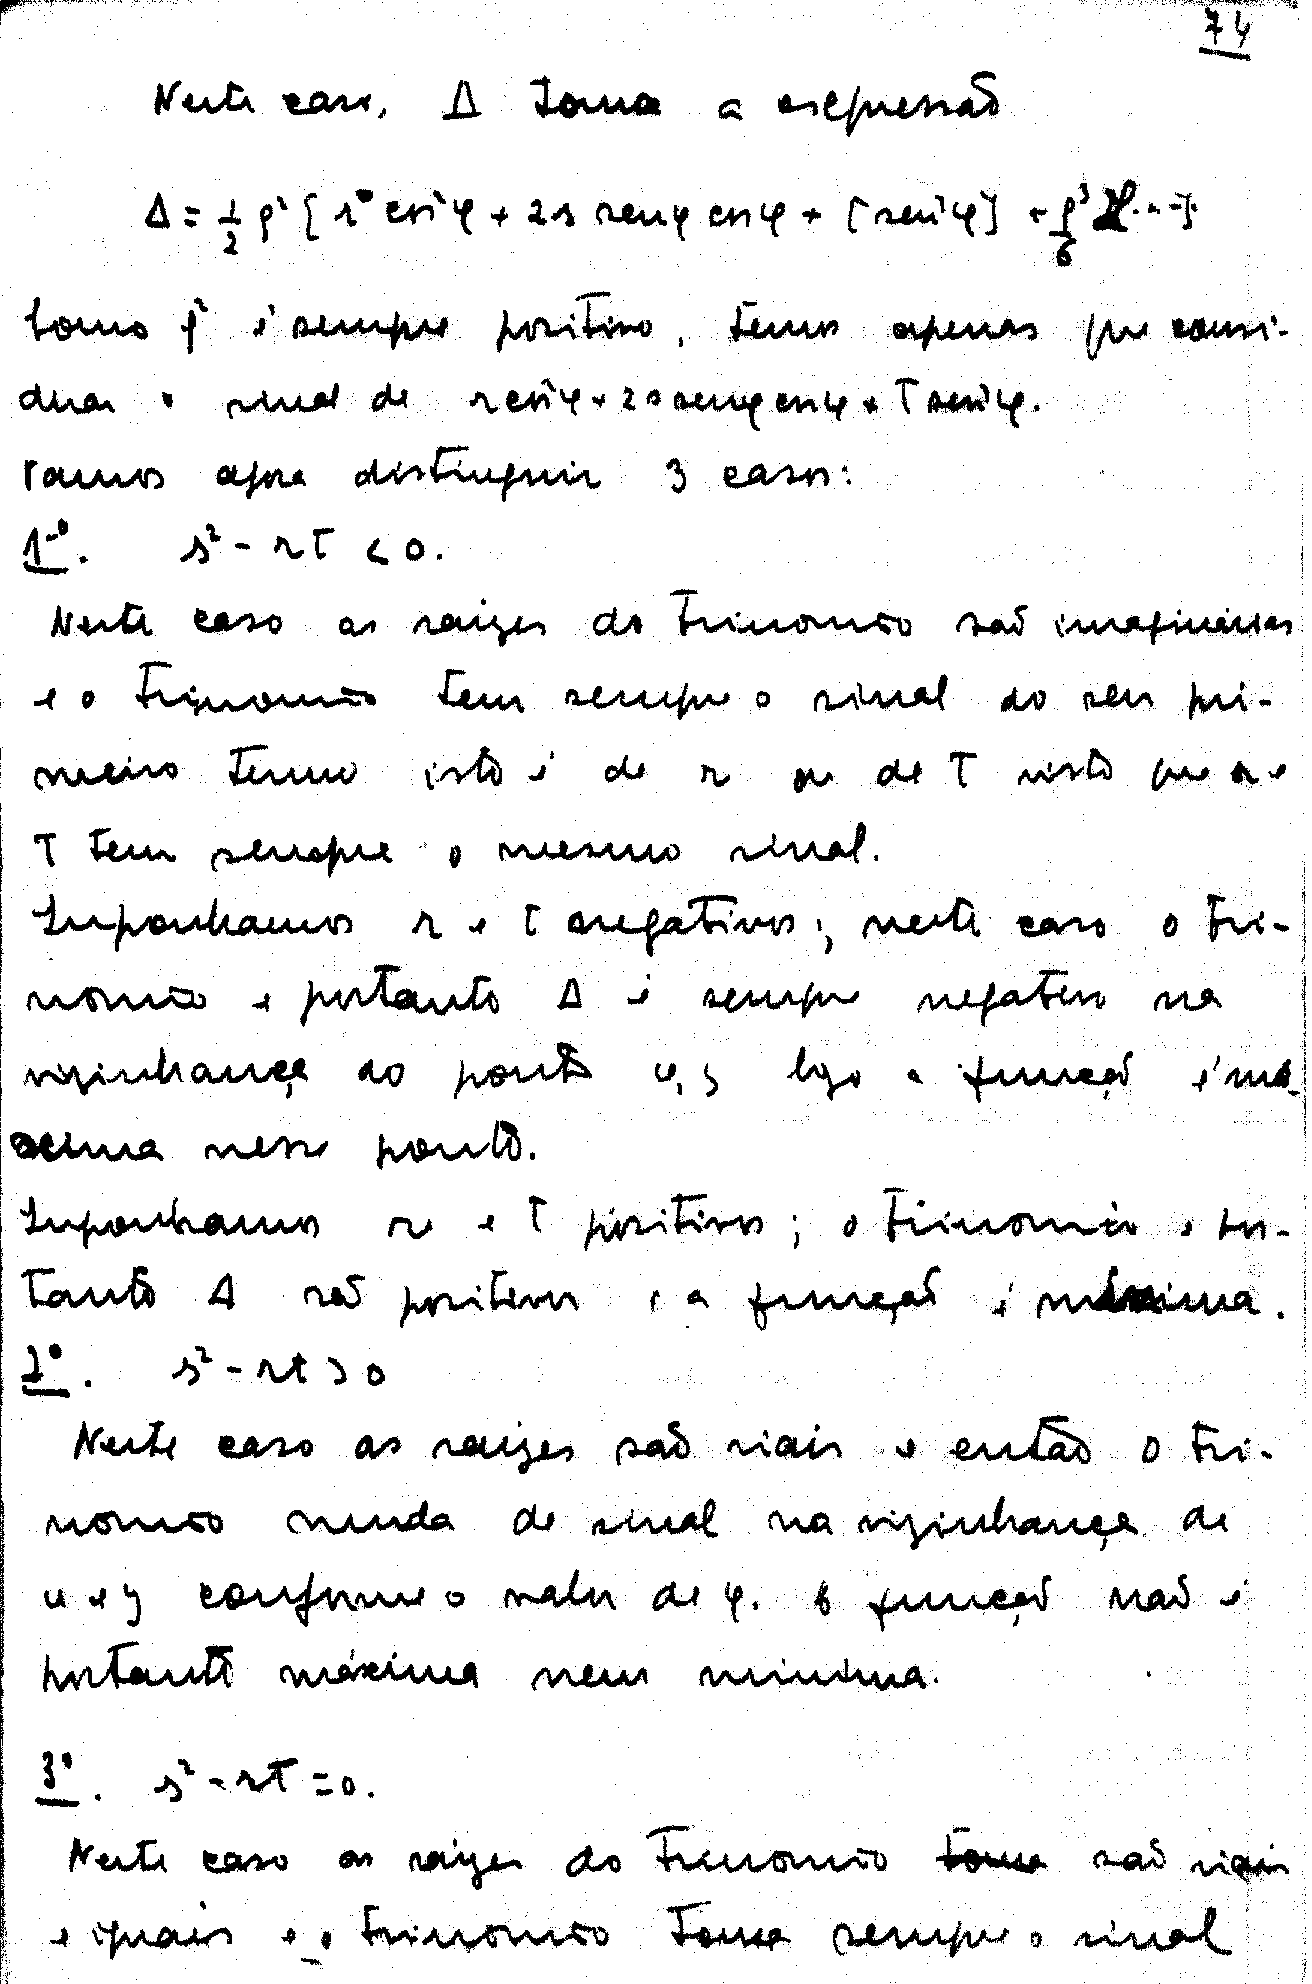 74
Neste caso, Δ toma a expressão
Δ = 1/2 ρ² [ r cos²φ + 2s senφ cosφ + t sen²φ ] + ρ³/6 [...]
Como ρ² é sempre positivo, temos apenas que consi-
derar o sinal de r cos²φ + 2s senφ cosφ + t sen²φ.
Vamos agora distinguir 3 casos:
1º. s² - rt < 0.
Neste caso as raizes do trinomio são imaginárias
e o trinomio tem sempre o sinal do seu pri-
meiro termo isto é de r ou de t visto que r e
t tem sempre o mesmo sinal.
Suponhamos r e t negativos; neste caso o tri-
nomio e portanto Δ é sempre negativo na
vizinhança do ponto x, y logo a função é má-
xima nesse ponto.
Suponhamos r e t positivos; o trinomio e por-
tanto Δ são positivos e a função é minima.
2º. s² - rt > 0
Neste caso as raizes são riais e então o tri-
nomio muda de sinal na vizinhança de
x e y conforme o valor de φ. A função não é
portanto máxima nem minima.
3º. s² - rt = 0.
Neste caso as raizes do trinomio toma são riais
e iguais e o trinomio toma sempre o sinal